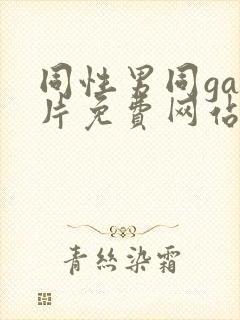 同性男同ga
片免費网佔
青絲染霜